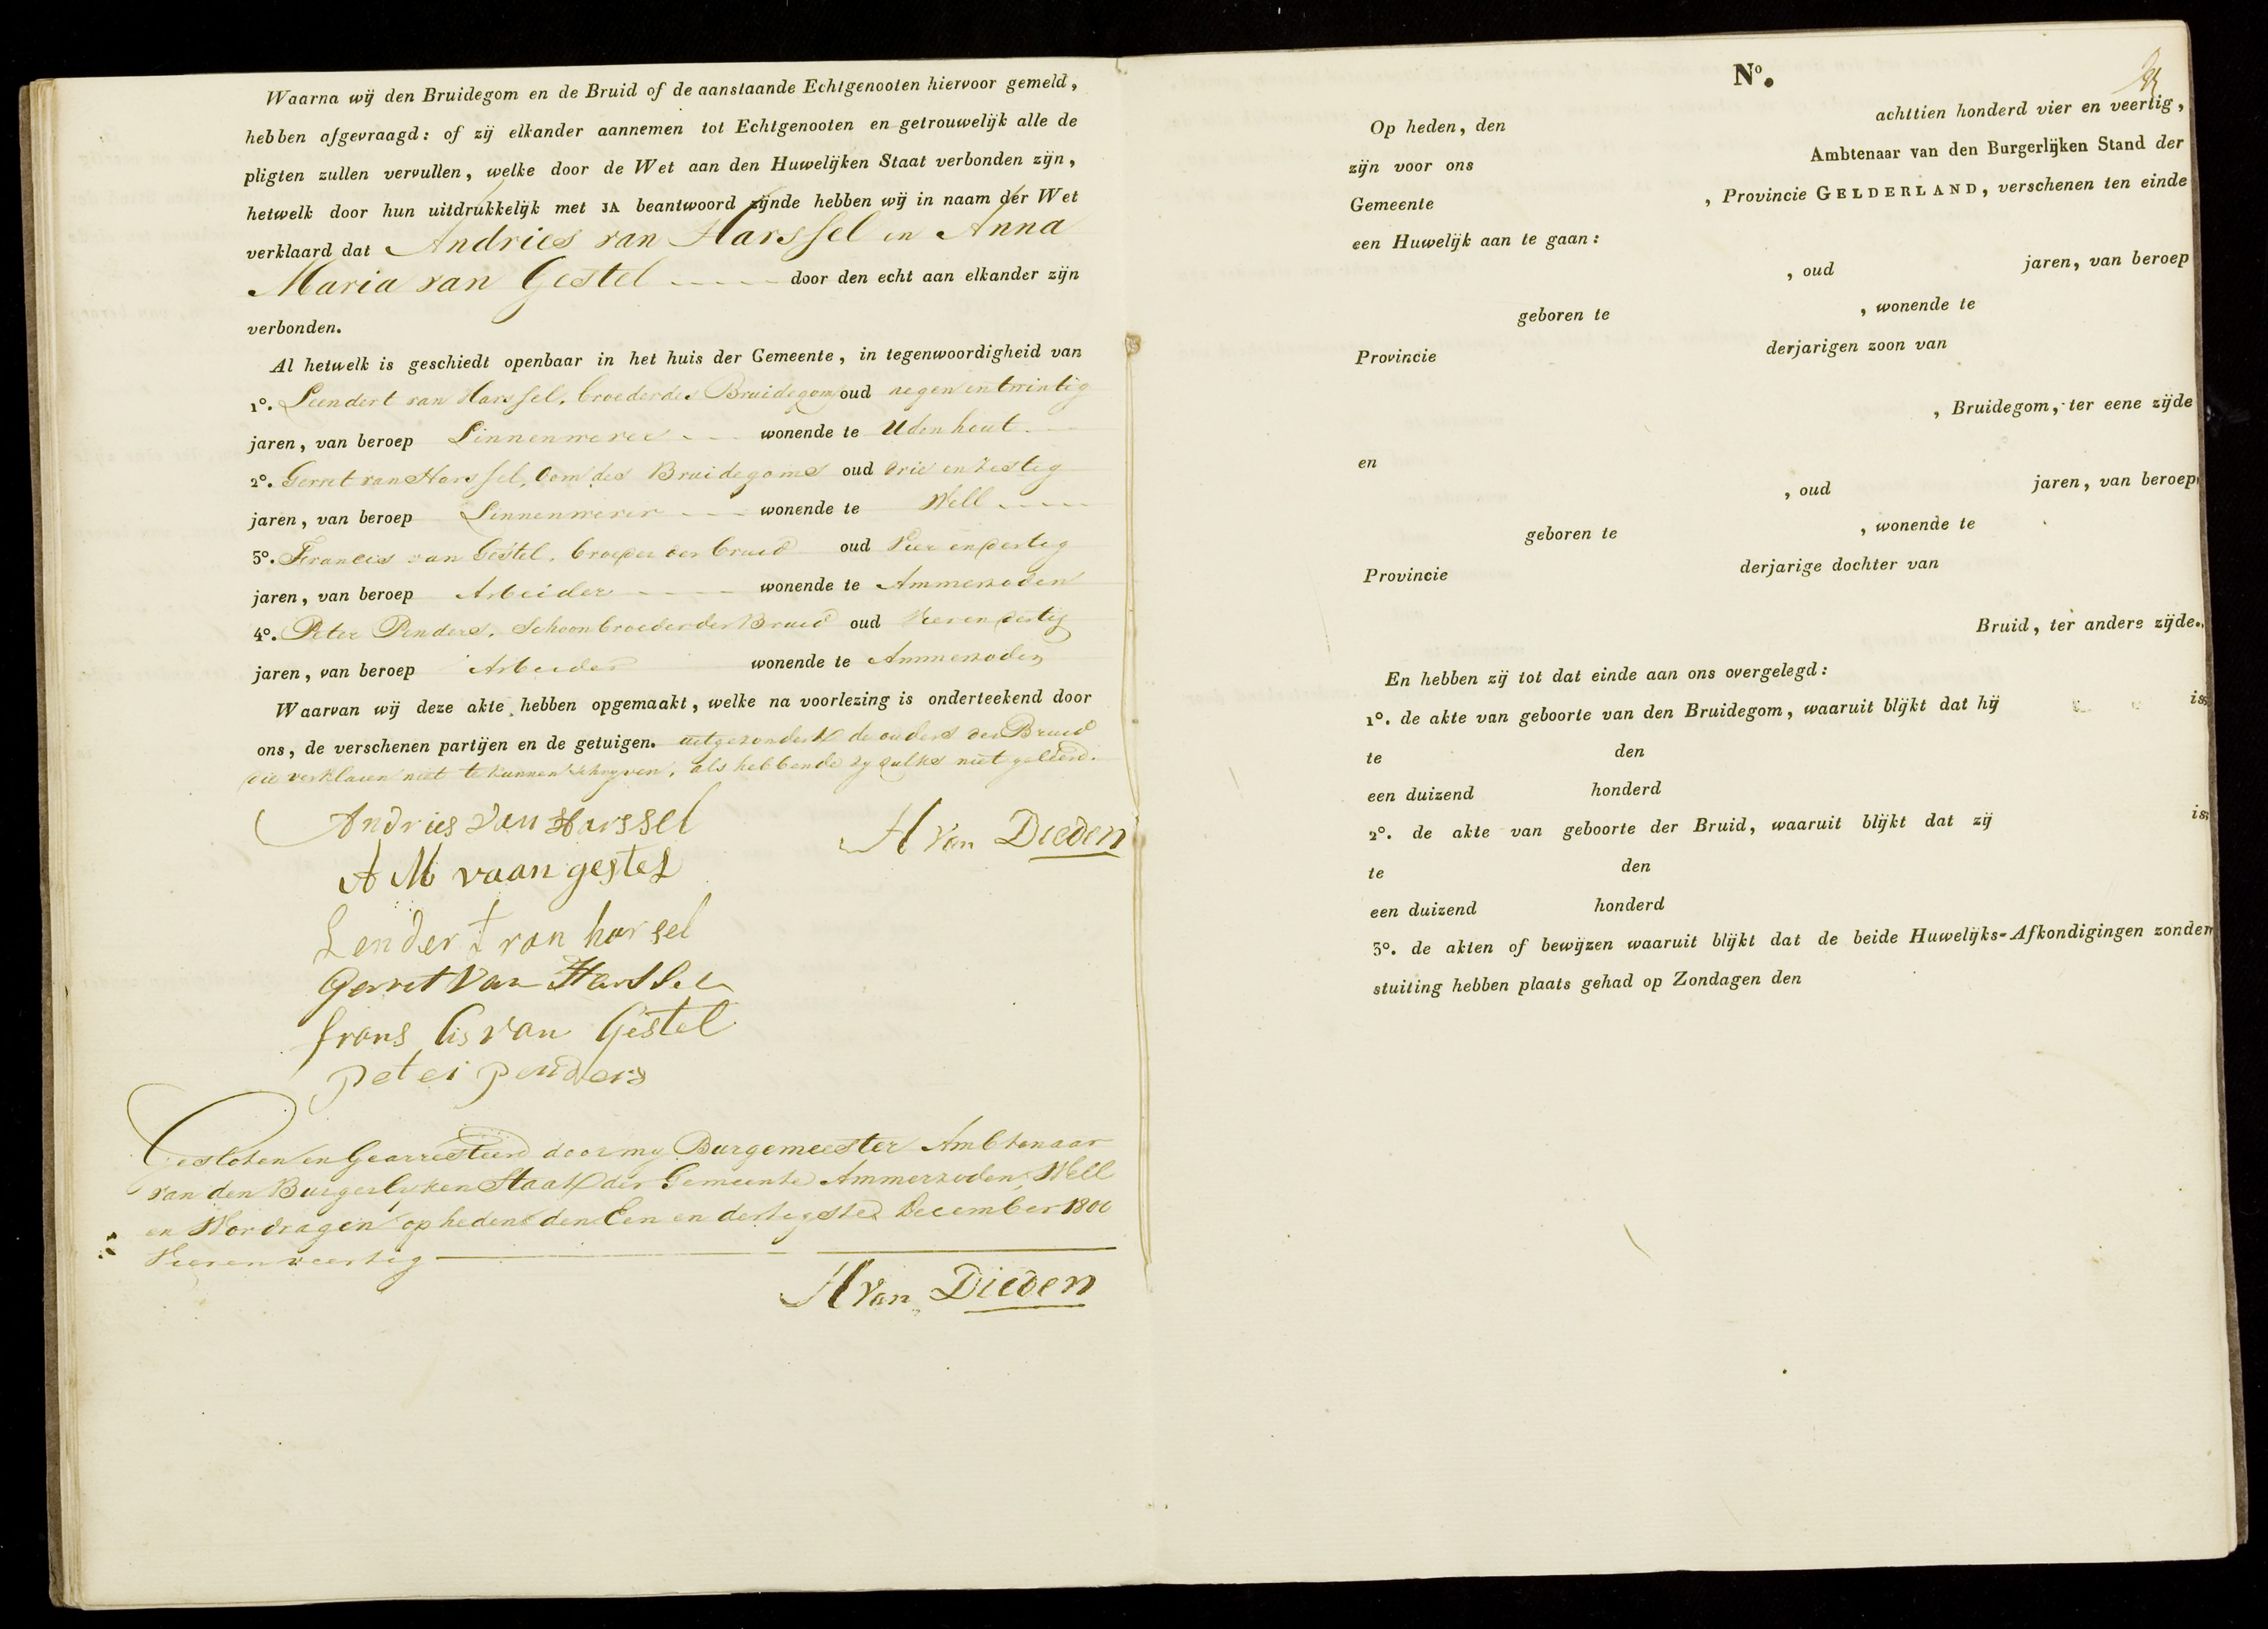 Waarna wij den Bruidegom en de Bruid of de aanstaande Echtgenooten hiervoor gemeld,
hebben afgevraagd: of zij elkander aannemen tot Echtgenooten en getrouwelijk alle de
pligten zullen vervullen, welke door de Wet aan den Huwelijken Staat verbonden zijn,
hetwelk door hun uitdrukkelijk met JA beantwoord zijnde hebben wij in naam der Wet
verklaard dat Andries van Harssel en Anna
Maria van Gestel door den echt aan elkander zijn
verbonden.
Al hetwelk is geschiedt openbaar in het huis der Gemeente, in tegenwoordigheid van
1o. Leendert van Harssel, broeder des Bruidegoms oud negen en twintig
jaren, van beroep Linnenwever wonende te Udenhout
2o. Gerret van Harssel, Oom des Bruidegoms oud drie en zestig
jaren, van beroep Linnenwever wonende te Well
3o. Francis van Gestel, broeder der bruid oud Vier en dertig
jaren, van beroep Arbeider wonende te Ammerzoden
4o. Peter Penders, Schoonbroeder der Bruid oud Vier en dertig
jaren, van beroep Arbeider wonende te Ammerzoden
Waarvan wij deze akte hebben opgemaakt, welke na voorlezing is onderteekend door
ons, de verschenen partijen en de getuigen. uitgezonderd de ouders der Bruid
die verklaren niet te kunnen schryven, als hebbende zy zulks niet geleerd.
Andries van Harssel
H van Dieden
A M vaan gestel
Lendert van harsel
Gerret van Harssel
frans Cis van Gestel
peter penders
Gesloten en Gearresteerd door my Burgemeester Ambtenaar
van den Burgerlyken Staat der Gemeente Ammerzoden, Well
en Wordragen op heden den Een en dertigsten December 1800
Vier en veertig
H van Dieden
No.
Op heden, den achttien honderd vier en veertig,
zijn voor ons Ambtenaar van den Burgerlijken Stand der
Gemeente , Provincie GELDERLAND, verschenen ten einde
een Huwelijk aan te gaan:
, oud jaren, van beroep
geboren te , wonende te
Provincie derjarigen zoon van
, Bruidegom, ter eene zijde
en
, oud jaren, van beroep
geboren te , wonende te
Provincie derjarige dochter van
Bruid, ter andere zijde.
En hebben zij tot dat einde aan ons overgelegd:
1o. de akte van geboorte van den Bruidegom, waaruit blijkt dat hij is
te den
een duizend honderd
2o. de akte van geboorte der Bruid, waaruit blijkt dat zij is
te den
een duizend honderd
3o. de akten of bewijzen waaruit blijkt dat de beide Huwelijks-Afkondigingen zonder
stuiting hebben plaats gehad op Zondagen den